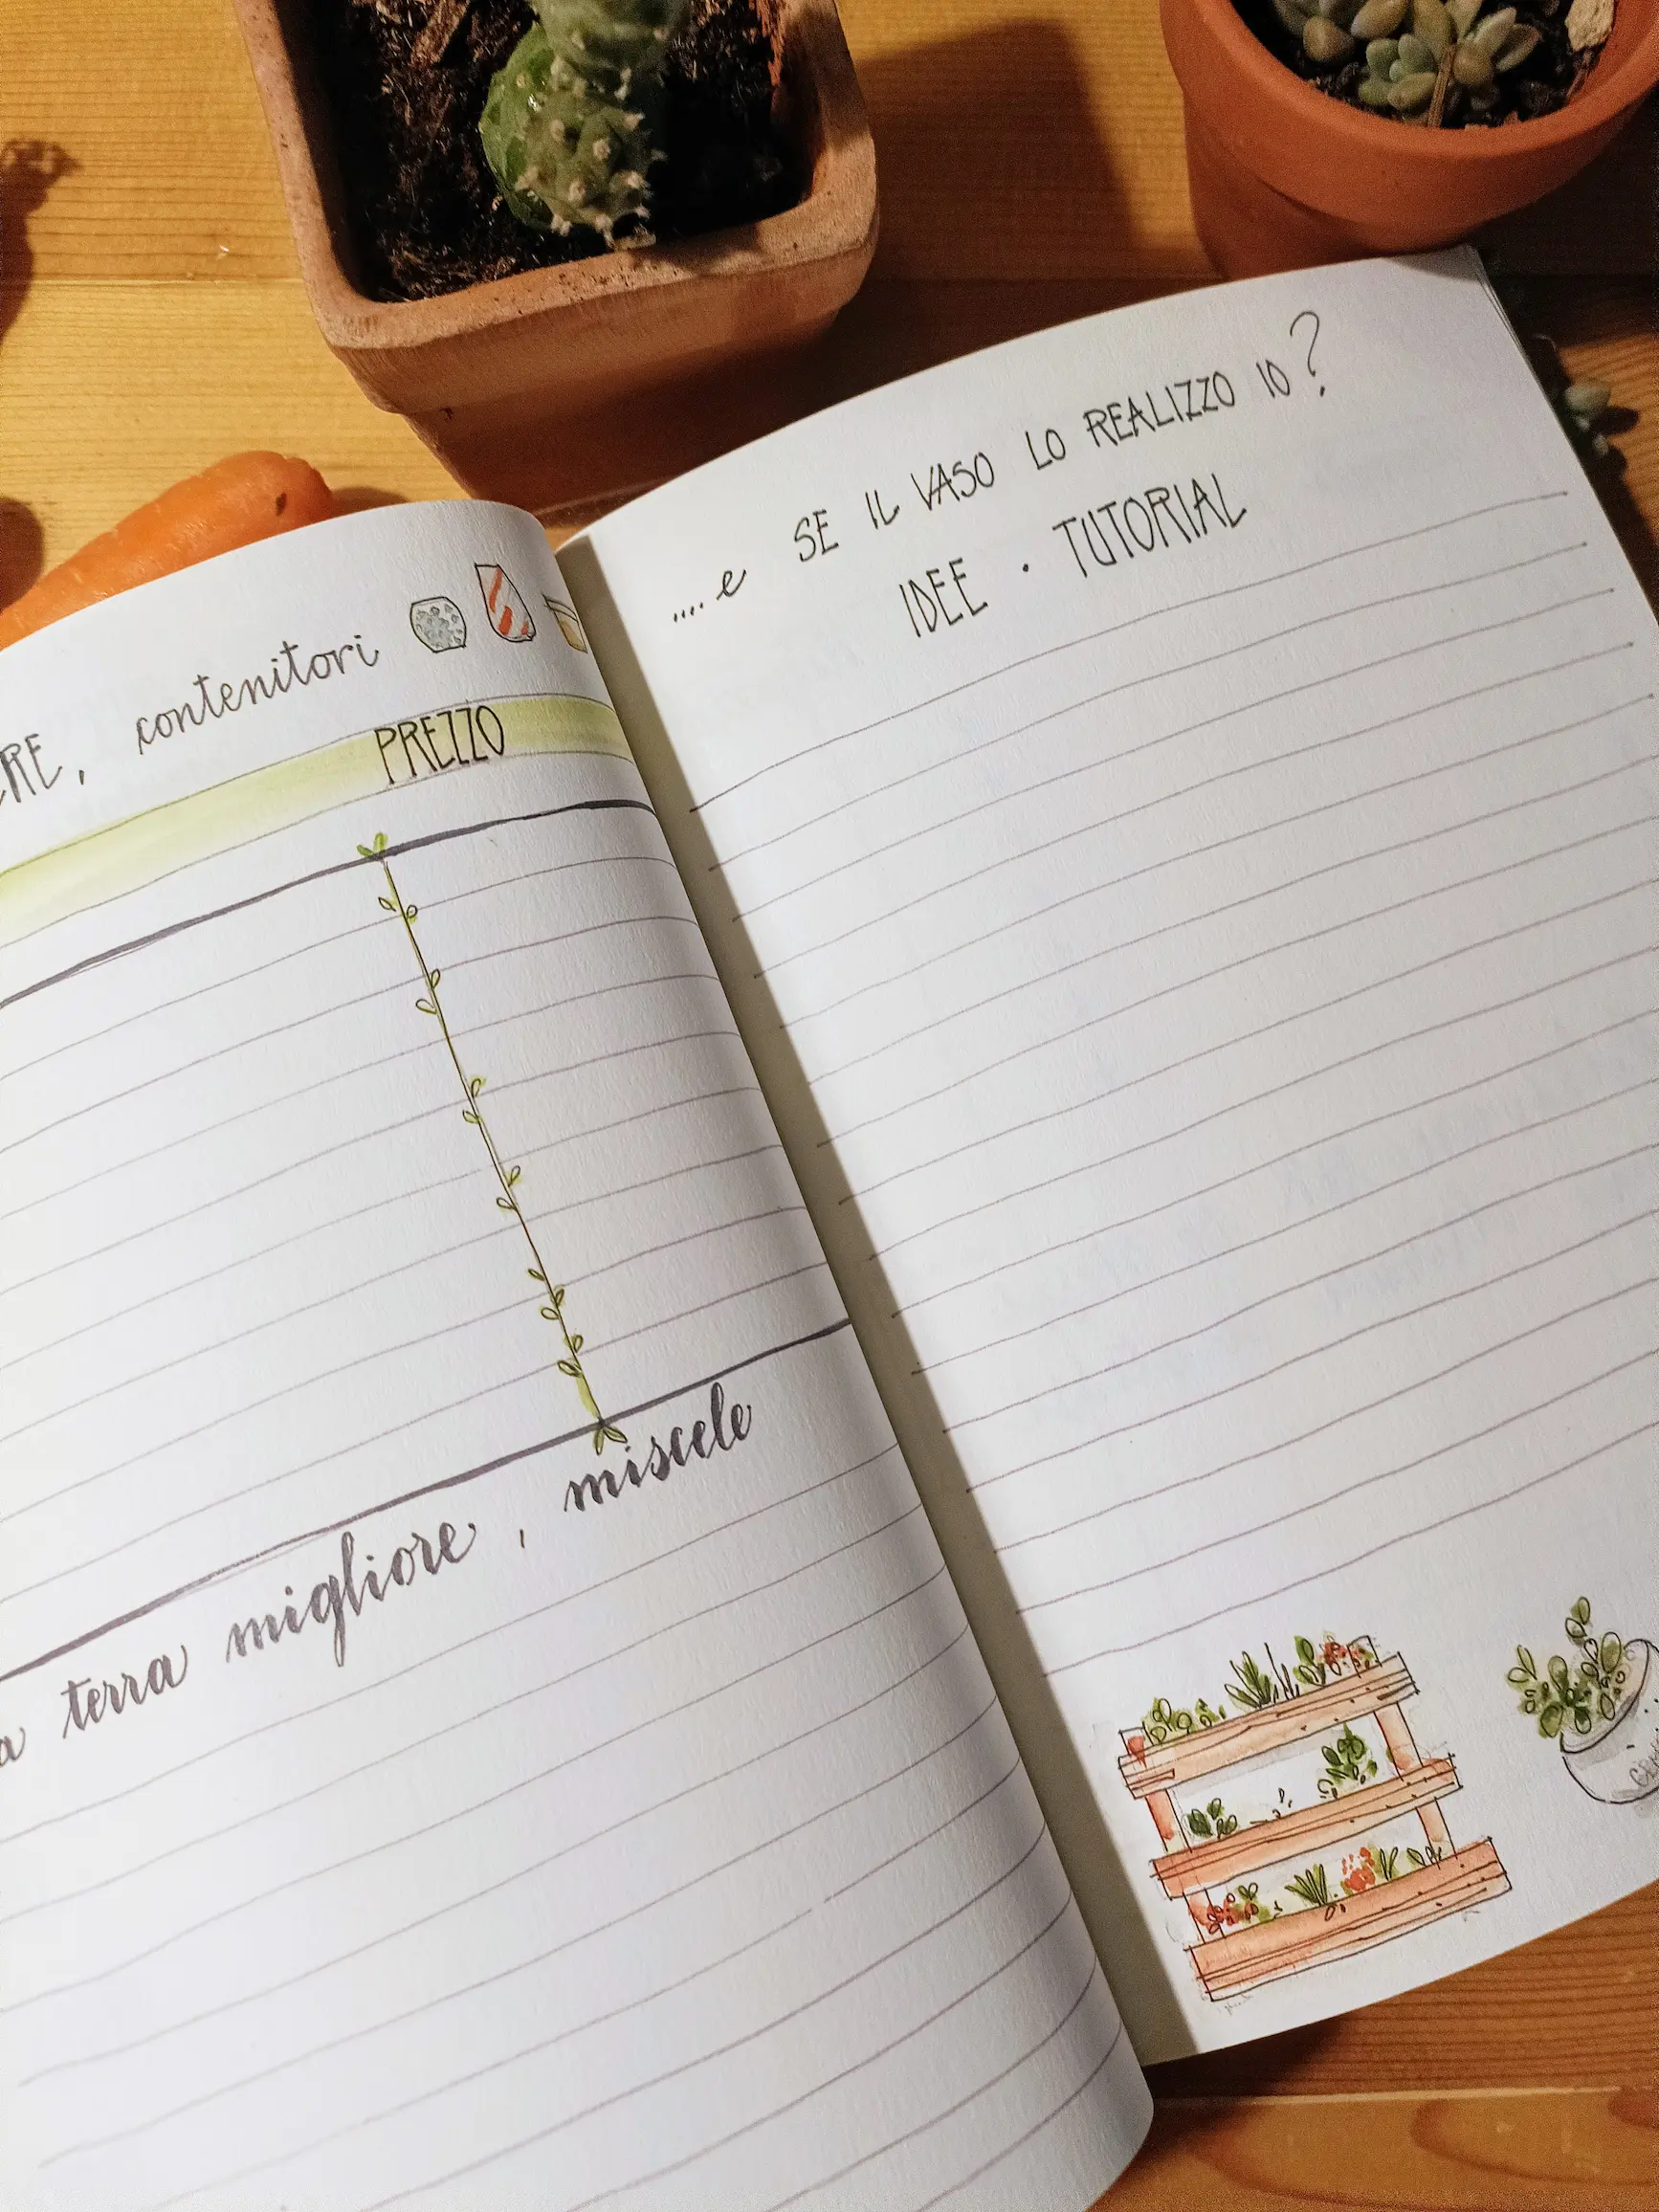 contenitori
PREZZO
terra migliore, miscele
.... e SE IL VASO LO REALIZZO IO?
IDEE · TUTORIAL